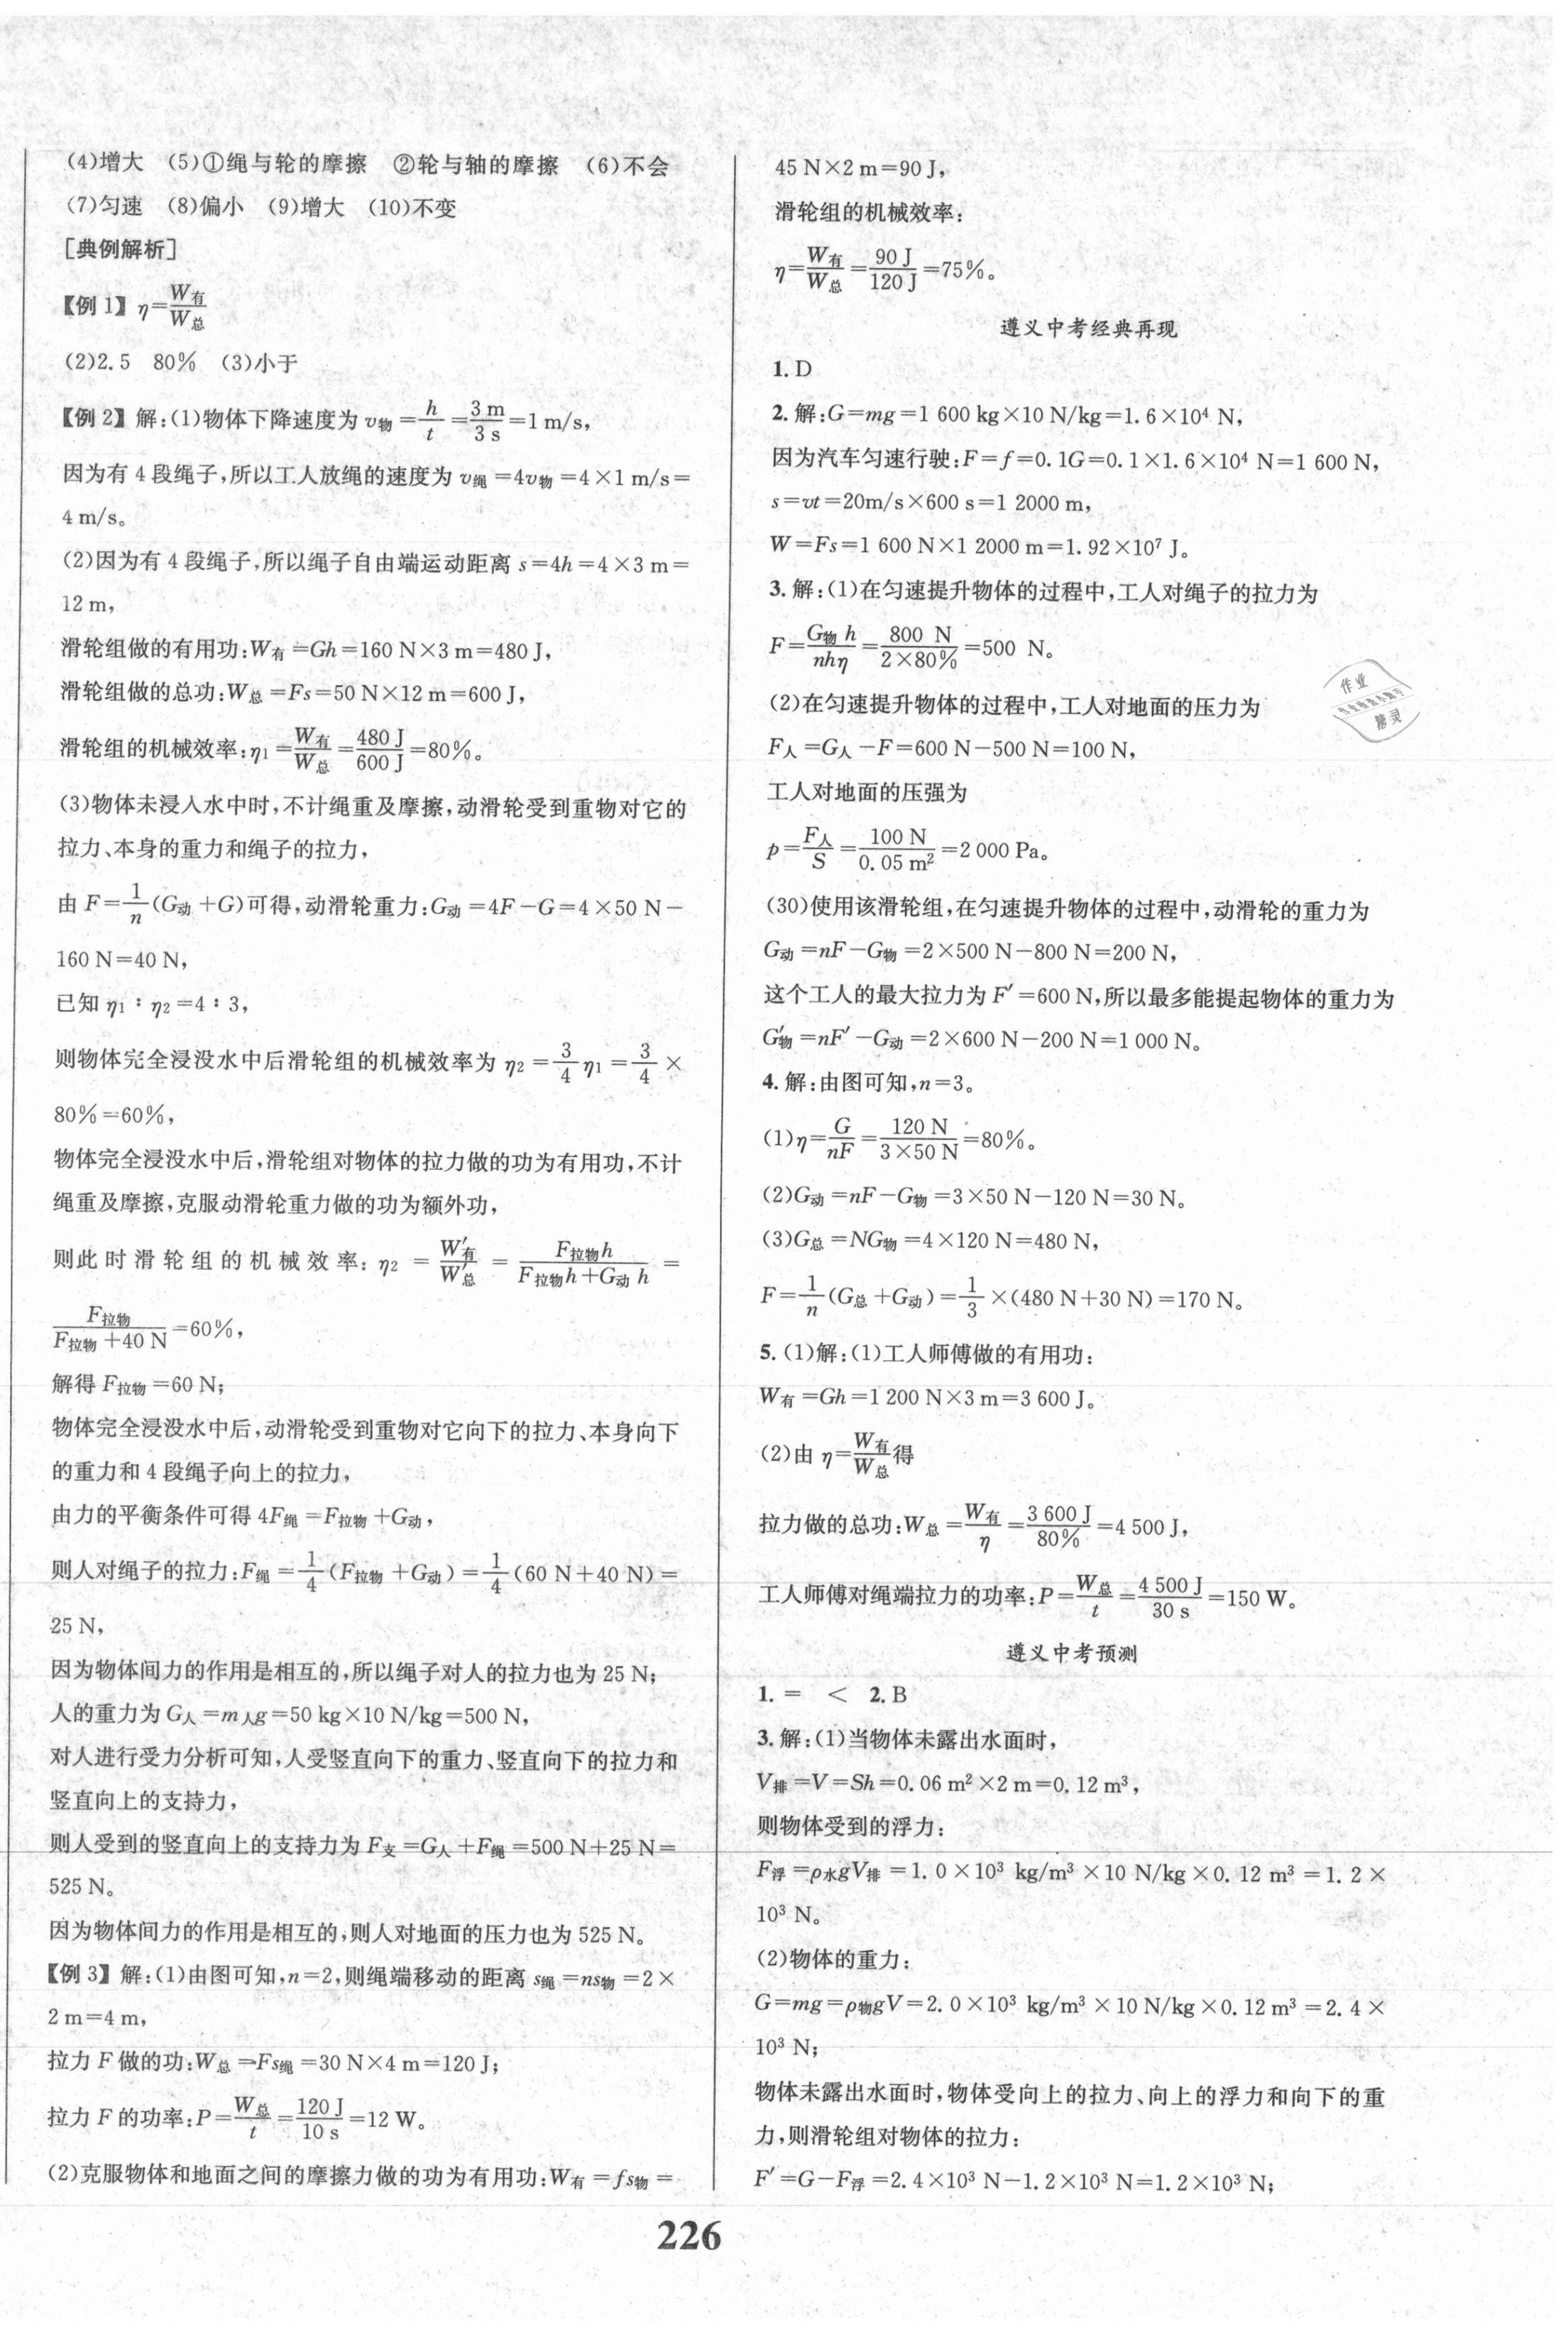 (4)增大 (5)①绳与轮的摩擦 ②轮与轴的摩擦 (6)不会
(7)匀速 (8)偏小 (9)增大 (10)不变
[典例解析]
【例1】η=W有/W总
(2)2.5 80% (3)小于
【例2】解:(1)物体下降速度为 v物=h/t=3 m/3 s=1 m/s,
因为有4段绳子,所以工人放绳的速度为 v绳=4v物=4×1 m/s=
4 m/s。
(2)因为有4段绳子,所以绳子自由端运动距离 s=4h=4×3 m=
12 m,
滑轮组做的有用功:W有=Gh=160 N×3 m=480 J,
滑轮组做的总功:W总=Fs=50 N×12 m=600 J,
滑轮组的机械效率:η1=W有/W总=480 J/600 J=80%。
(3)物体未浸入水中时,不计绳重及摩擦,动滑轮受到重物对它的
拉力、本身的重力和绳子的拉力,
由 F=1/n(G动+G)可得,动滑轮重力:G动=4F-G=4×50 N-
160 N=40 N,
已知 η1∶η2=4∶3,
则物体完全浸没水中后滑轮组的机械效率为 η2=3/4η1=3/4×
80%=60%,
物体完全浸没水中后,滑轮组对物体的拉力做的功为有用功,不计
绳重及摩擦,克服动滑轮重力做的功为额外功,
则此时滑轮组的机械效率:η2=W′有/W′总=F拉物h/(F拉物h+G动h)=
F拉物/(F拉物+40 N)=60%,
解得 F拉物=60 N;
物体完全浸没水中后,动滑轮受到重物对它向下的拉力、本身向下
的重力和4段绳子向上的拉力,
由力的平衡条件可得 4F绳=F拉物+G动,
则人对绳子的拉力:F绳=1/4(F拉物+G动)=1/4(60 N+40 N)=
25 N,
因为物体间力的作用是相互的,所以绳子对人的拉力也为 25 N;
人的重力为 G人=m人g=50 kg×10 N/kg=500 N,
对人进行受力分析可知,人受竖直向下的重力、竖直向下的拉力和
竖直向上的支持力,
则人受到的竖直向上的支持力为 F支=G人+F绳=500 N+25 N=
525 N。
因为物体间力的作用是相互的,则人对地面的压力也为 525 N。
【例3】解:(1)由图可知,n=2,则绳端移动的距离 s绳=ns物=2×
2 m=4 m,
拉力 F 做的功:W总=Fs绳=30 N×4 m=120 J;
拉力 F 的功率:P=W总/t=120 J/10 s=12 W。
(2)克服物体和地面之间的摩擦力做的功为有用功:W有=fs物=
45 N×2 m=90 J,
滑轮组的机械效率:
η=W有/W总=90 J/120 J=75%。
遵义中考经典再现
1. D
2. 解:G=mg=1 600 kg×10 N/kg=1.6×10⁴ N,
因为汽车匀速行驶:F=f=0.1G=0.1×1.6×10⁴ N=1 600 N,
s=vt=20m/s×600 s=1 2000 m,
W=Fs=1 600 N×1 2000 m=1.92×10⁷ J。
3. 解:(1)在匀速提升物体的过程中,工人对绳子的拉力为
F=G物h/nhη=800 N/2×80%=500 N。
(2)在匀速提升物体的过程中,工人对地面的压力为
F人=G人-F=600 N-500 N=100 N,
工人对地面的压强为
p=F人/S=100 N/0.05 m²=2 000 Pa。
(30)使用该滑轮组,在匀速提升物体的过程中,动滑轮的重力为
G动=nF-G物=2×500 N-800 N=200 N,
这个工人的最大拉力为 F′=600 N,所以最多能提起物体的重力为
G′物=nF′-G动=2×600 N-200 N=1 000 N。
4. 解:由图可知,n=3。
(1)η=G/nF=120 N/3×50 N=80%。
(2)G动=nF-G物=3×50 N-120 N=30 N。
(3)G总=NG物=4×120 N=480 N,
F=1/n(G总+G动)=1/3×(480 N+30 N)=170 N。
5. (1)解:(1)工人师傅做的有用功:
W有=Gh=1 200 N×3 m=3 600 J。
(2)由 η=W有/W总得
拉力做的总功:W总=W有/η=3 600 J/80%=4 500 J,
工人师傅对绳端拉力的功率:P=W总/t=4 500 J/30 s=150 W。
遵义中考预测
1. = < 2. B
3. 解:(1)当物体未露出水面时,
V排=V=Sh=0.06 m²×2 m=0.12 m³,
则物体受到的浮力:
F浮=ρ水gV排=1.0×10³ kg/m³×10 N/kg×0.12 m³=1.2×
10³ N。
(2)物体的重力:
G=mg=ρ物gV=2.0×10³ kg/m³×10 N/kg×0.12 m³=2.4×
10³ N;
物体未露出水面时,物体受向上的拉力、向上的浮力和向下的重
力,则滑轮组对物体的拉力:
F′=G-F浮=2.4×10³ N-1.2×10³ N=1.2×10³ N;
226
作业
精灵